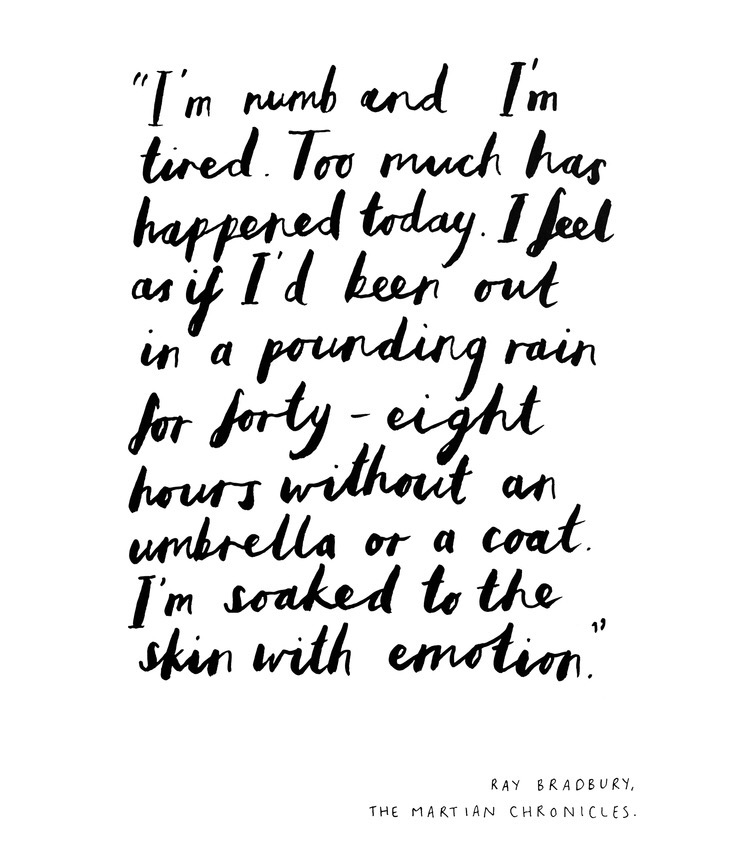 “I'm numb and I'm
tired. Too much has
happened today. I feel
as if I'd been out
in a pounding rain
for forty-eight
hours without an
umbrella or a coat.
I'm soaked to the
skin with emotion.”
RAY BRADBURY,
THE MARTIAN CHRONICLES.